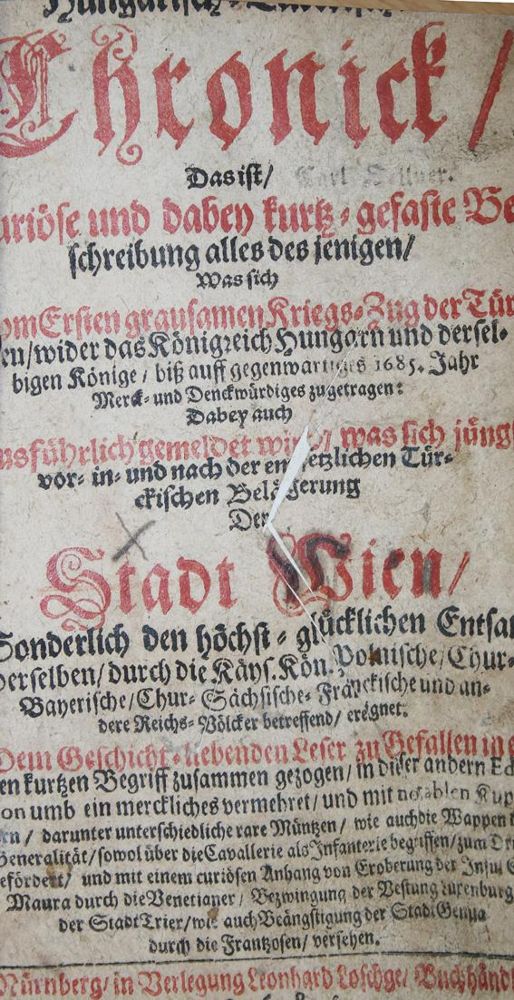 Chronick/
Das ist/
uriöse und dabey kurtz-gefaste Be
schreibung alles des jenigen/
Was sich
om Ersten grausamen Kriegs-Zug der Tür
cken/ wider das Königreich Hungarn und dersel-
bigen Könige/ biß auff gegenwärtiges 1685. Jahr
Merck- und Denckwürdiges zugetragen:
Dabey auch
usführlich gemeldet wird/ was sich jüngst
vor- in- und nach der entsetzlichen Tür-
ckischen Belägerung
Der
Stadt Wien/
Sonderlich den höchst-glücklichen Entsat
derselben/ durch die Käys. Kön. Polnische/ Chur-
Bayerische/ Chur-Sächsische-Fränckische und an-
dere Reichs-Völcker betreffend/ ereignet.
Dem Geschicht-liebenden Leser zu Gefallen in
en kurtzen Begriff zusammen gezogen/ in dieser andern Ed
on umb ein merckliches vermehret/ und mit notablen Kup
rn/ darunter unterschiedliche rare Müntzen/ wie auch die Wappen
Generalität/ sowol über die Cavallerie als Infanterie begriffen/ zum Dr
efördert/ und mit einem curiösen Anhang von Eroberung der Insul S
Maura durch die Venetianer/ Bezwingung der Vestung Lutzenburg
der Stadt Trier/ wie auch Beängstigung der Stadt Genua
durch die Frantzosen/ versehen.
Nürnberg/ in Verlegung Leonhard Loschge/ Buchhändl